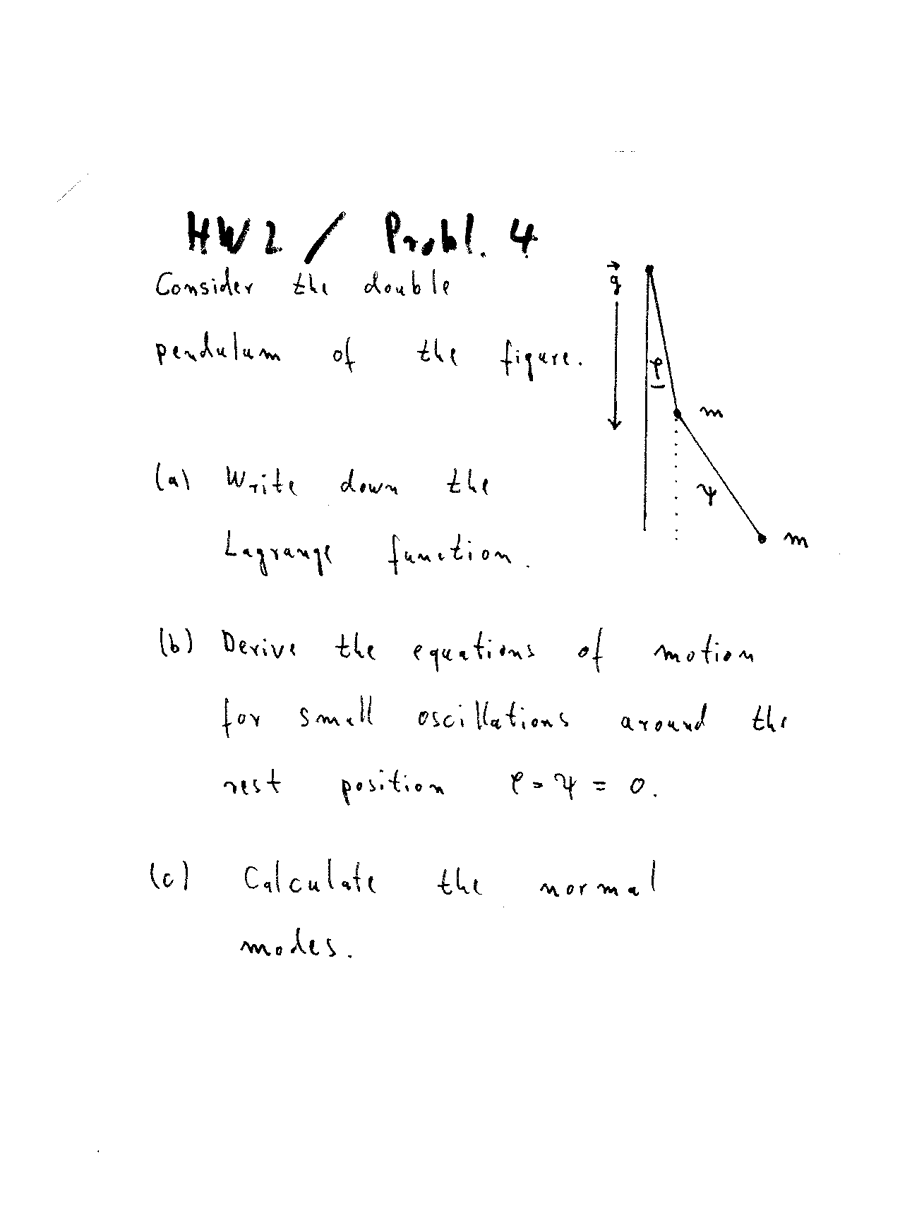 HW2 / Probl. 4
Consider the double
pendulum of the figure.
g⃗
φ
m
ψ
m
(a) Write down the
Lagrange function.
(b) Derive the equations of motion
for small oscillations around the
rest position φ = ψ = 0.
(c) Calculate the normal
modes.